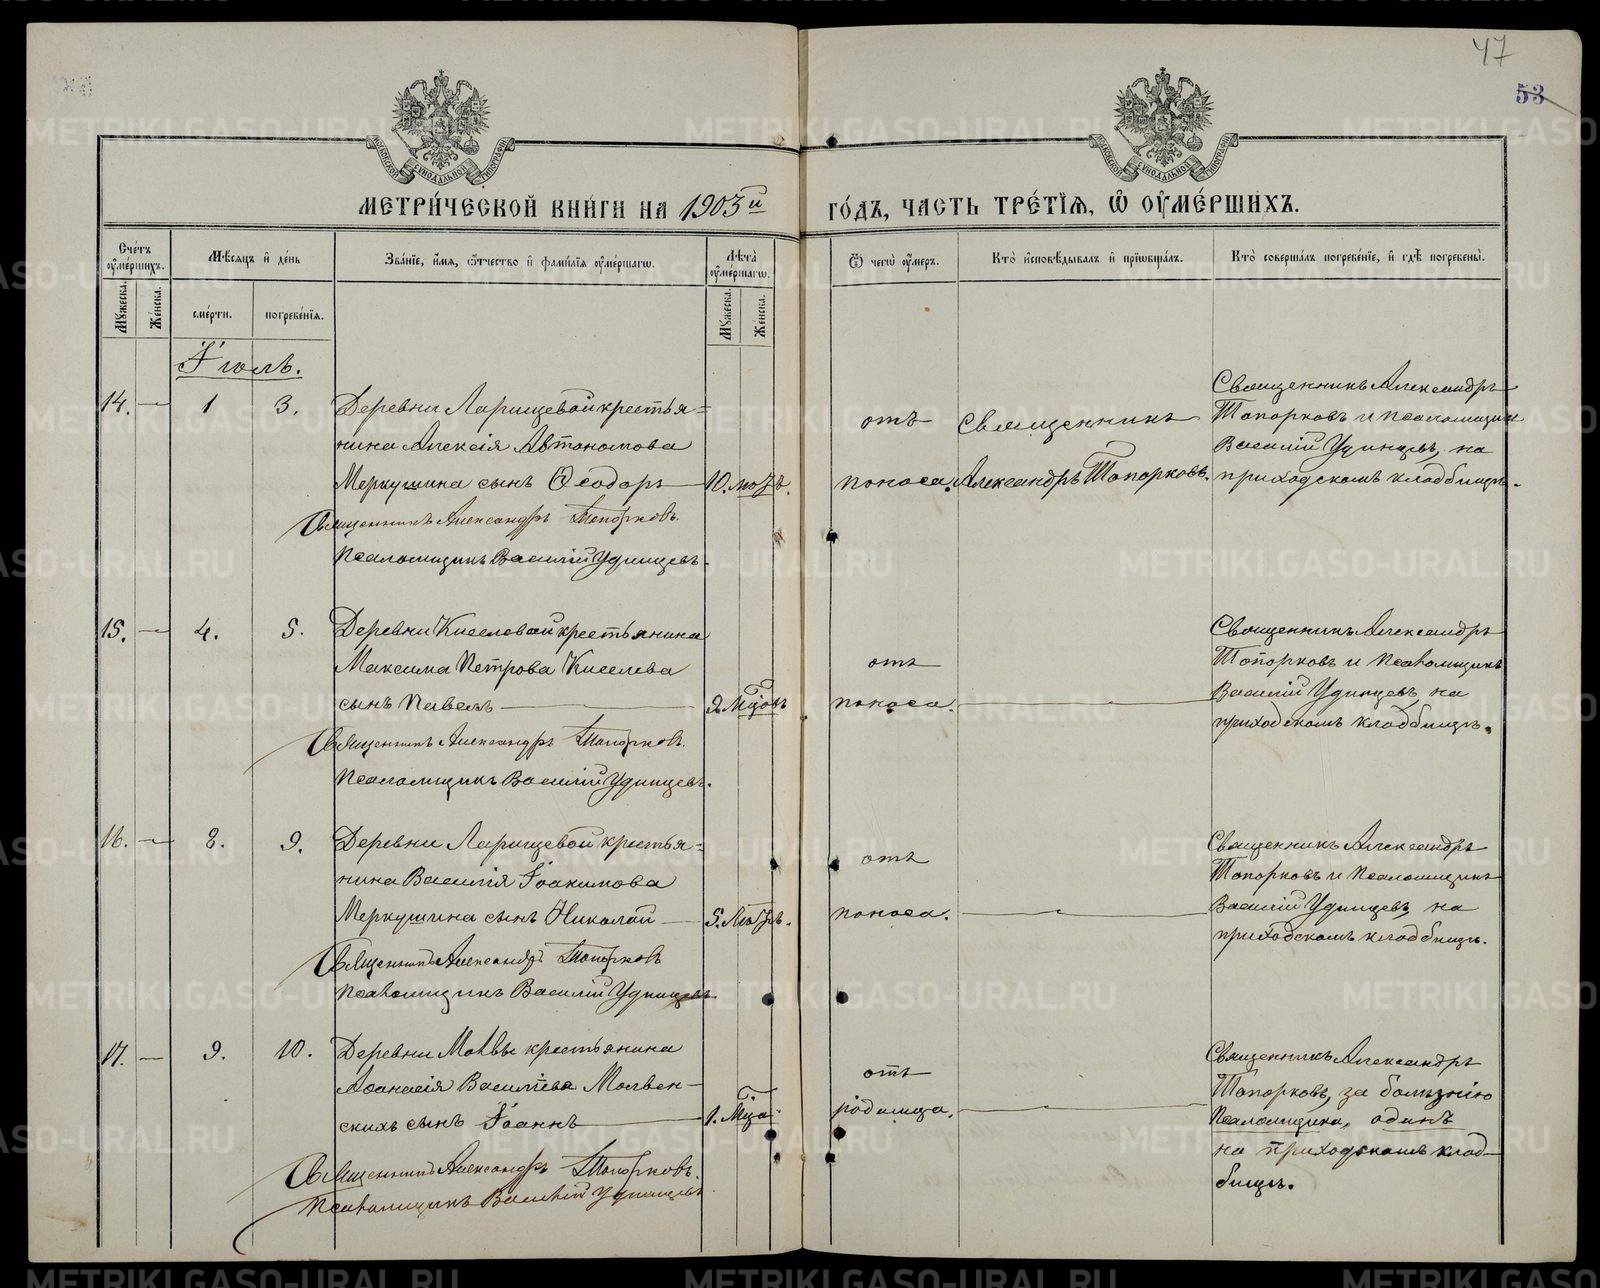 47
53
МЕТРИ́ЧЕСКОЙ КНИ́ГИ НА 1903й ГО́ДЪ, ЧАСТЬ ТРЕ́ТЇѦ, Ѿ ОУМЕ́РШИХЪ.
Сче́тъ оуме́ршихъ.
Мꙋжеска.
Же́нска.
Мѣсѧцъ и де́нь
сме́рти.
погребе́нїѧ.
Зва́нїе, и́мѧ, ѻ҆́тчество и фами́лїѧ оуме́ршагѡ.
Лѣта̀ оуме́ршагѡ.
Мꙋжеска.
Же́нска.
Ѿ чегѡ̀ оу́меръ.
Кто̀ исповѣ́дывалъ и прїѡбща́лъ.
Кто̀ соверша́лъ погребе́нїе, и гдѣ̀ погребены̀.
Іюль.
14. — 1 3.
Деревни Ларищевой крестья=
нина Алексія Автономова
Меркушина сынъ Ѳеодоръ — 10. мѣ.
Священникъ Александръ Топорковъ.
Псаломщикъ Василій Удинцевъ.
отъ
поноса.
Священникъ
Александръ Топорковъ.
Священникъ Александръ
Топорковъ и псаломщикъ
Василій Удинцевъ, на
приходскомъ кладбищѣ.
15. — 4. 5.
Деревни Киселевой крестьянина
Максима Петрова Киселева
сынъ Павелъ — 2. Мцовъ
Священникъ Александръ Топорковъ.
Псаломщикъ Василій Удинцевъ.
отъ
поноса.
Священникъ Александръ
Топорковъ и псаломщикъ
Василій Удинцевъ, на
приходскомъ кладбищѣ.
16. — 8. 9.
Деревни Ларищевой крестья=
нина Василія Іоакимова
Меркушина сынъ Николай — 5.
Священникъ Александръ Топорковъ
Псаломщикъ Василій Удинцевъ
отъ
поноса.
Священникъ Александръ
Топорковъ и псаломщикъ
Василій Удинцевъ, на
приходскомъ кладбищѣ.
17. — 9. 10.
Деревни Молвы крестьянина
Аѳанасія Васильева Молвен-
скихъ сынъ Іоаннъ — 1. Мца.
Священникъ Александръ Топорковъ.
Псаломщикъ Василій Удинцевъ.
отъ
родимца.
Священникъ Александръ
Топорковъ, за болѣзнію
псаломщика, одинъ
на приходскомъ клад-
бищѣ.
METRIKI.GASO-URAL.RU